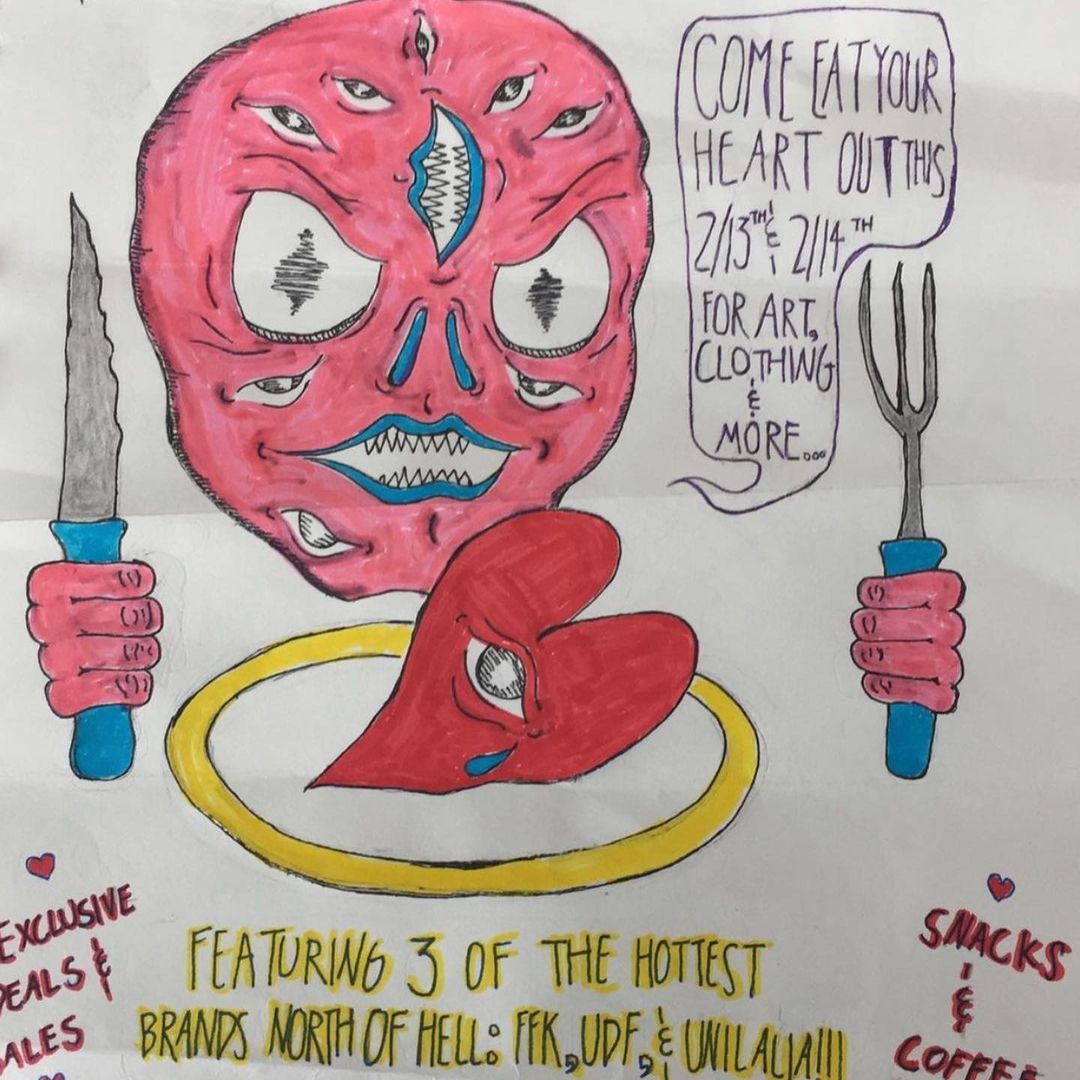 COME EAT YOUR
HEART OUT THIS
2/13TH & 2/14TH
FOR ART,
CLOTHING
&
MORE...
EXCLUSIVE
DEALS &
SALES
FEATURING 3 OF THE HOTTEST
BRANDS NORTH OF HELL: FFK, UDF, & UNILALIA!!!
SNACKS
&
COFFEE